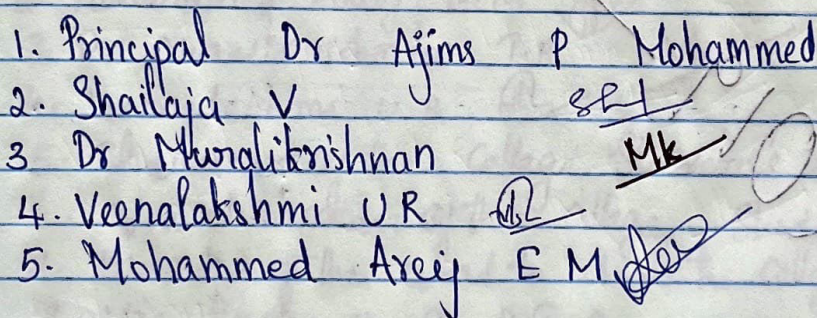 1. Principal Dr Ajims P Mohammed
2. Shailaja V
3 Dr Muralikrishnan Mk
4. Veenalakshmi U R
5. Mohammed Areej E M